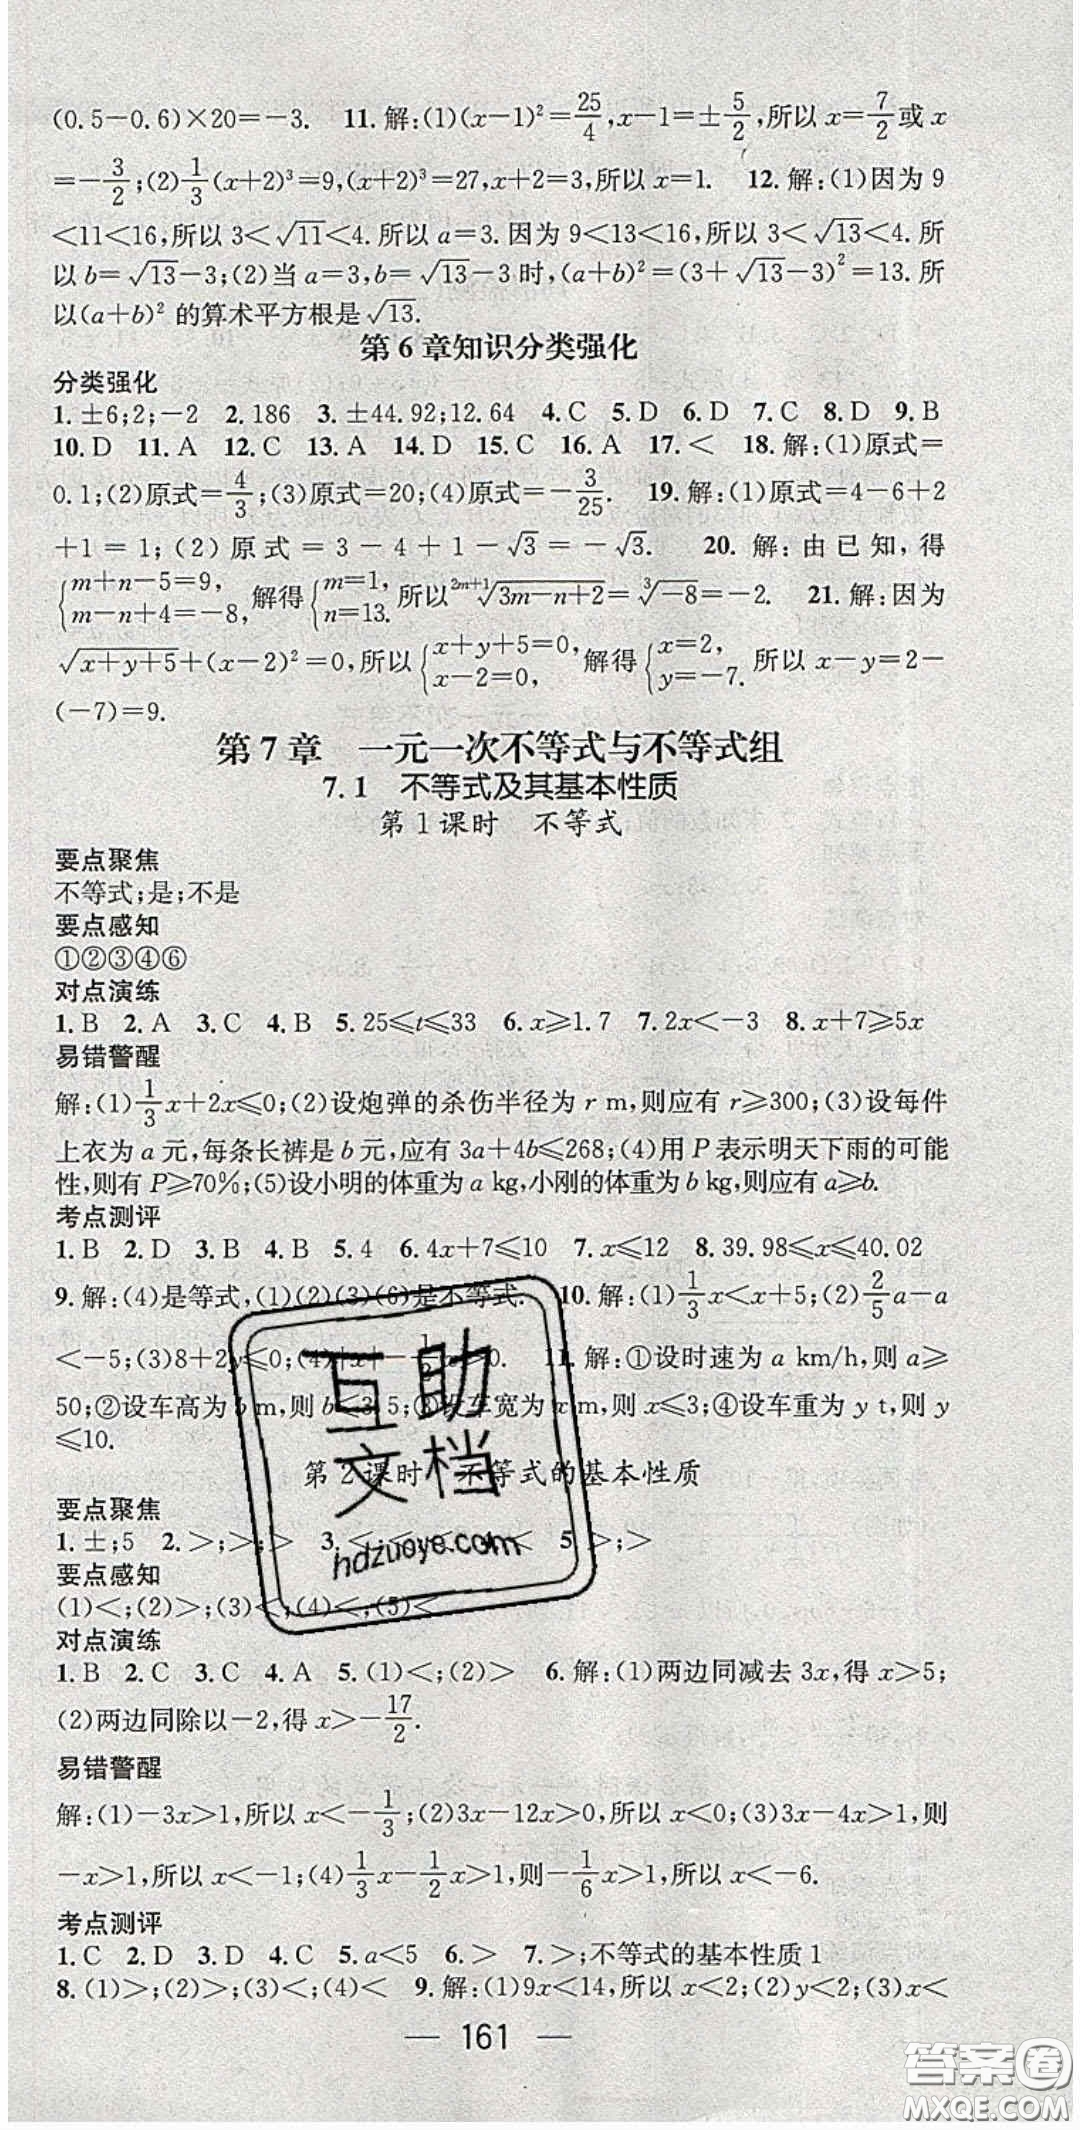 (0.5-0.6)×20=-3. 11.解:(1)(x-1)²=25/4,x-1=±5/2,所以x=7/2或x
=-3/2;(2)1/3(x+2)³=9,(x+2)³=27,x+2=3,所以x=1. 12.解:(1)因为9
<11<16,所以3<√11<4.所以a=3.因为9<13<16,所以3<√13<4.所
以b=√13-3;(2)当a=3,b=√13-3时,(a+b)²=(3+√13-3)²=13.所
以(a+b)²的算术平方根是√13.
第6章知识分类强化
分类强化
1.±6;2;-2 2.186 3.±44.92;12.64 4.C 5.D 6.D 7.C 8.D 9.B
10.D 11.A 12.C 13.A 14.D 15.C 16.A 17.< 18.解:(1)原式=
0.1;(2)原式=4/3;(3)原式=20;(4)原式=-3/25. 19.解:(1)原式=4-6+2
+1=1;(2)原式=3-4+1-√3=-√3. 20.解:由已知,得
{m+n-5=9, m-n+4=-8, 解得{m=1, n=13. 所以 ²ᵐ⁺¹√(3m-n+2)=³√-8=-2. 21.解:因为
√(x+y+5)+(x-2)²=0,所以{x+y+5=0, x-2=0, 解得{x=2, y=-7. 所以x-y=2-
(-7)=9.
第7章 一元一次不等式与不等式组
7.1 不等式及其基本性质
第1课时 不等式
要点聚焦
不等式;是;不是
要点感知
①②③④⑥
对点演练
1.B 2.A 3.C 4.B 5.25≤t≤33 6.x≥1.7 7.2x<-3 8.x+7≥5x
易错警醒
解:(1)1/3x+2x≤0;(2)设炮弹的杀伤半径为r m,则应有r≥300;(3)设每件
上衣为a元,每条长裤是b元,应有3a+4b≤268;(4)用P表示明天下雨的可能
性,则有P≥70%;(5)设小明的体重为a kg,小刚的体重为b kg,则应有a≥b.
考点测评
1.B 2.D 3.B 4.B 5.4 6.4x+7≤10 7.x≤12 8.39.98≤x≤40.02
9.解:(4)是等式,(1)(2)(3)(6)是不等式. 10.解:(1)1/3x<x+5;(2)2/5a-a
<-5;(3)8+2y≤0;(4) 0. 11.解:①设时速为a km/h,则a≥
50;②设车高为b m,则b≤3.5;③设车宽为x m,则x≤3;④设车重为y t,则y
≤10.
第2课时 不等式的基本性质
要点聚焦
1.±;5 2.>;>;> 3. 5.>;>
要点感知
(1)<;(2)>;(3)<;(4)<;(5)<
对点演练
1.B 2.C 3.C 4.A 5.(1)<;(2)> 6.解:(1)两边同减去3x,得x>5;
(2)两边同除以-2,得x>-17/2.
易错警醒
解:(1)-3x>1,所以x<-1/3;(2)3x-12x>0,所以x<0;(3)3x-4x>1,则
-x>1,所以x<-1;(4)1/3x-1/2x>1,则-1/6x>1,所以x<-6.
考点测评
1.C 2.D 3.D 4.C 5.a<5 6.> 7.>;不等式的基本性质1
8.(1)>;(2)>;(3)<;(4)< 9.解:(1)9x<14,所以x<2;(2)y<2;(3)x<
— 161 —
互助
文档
hdzuoye.com
答案圈
MXQE.COM